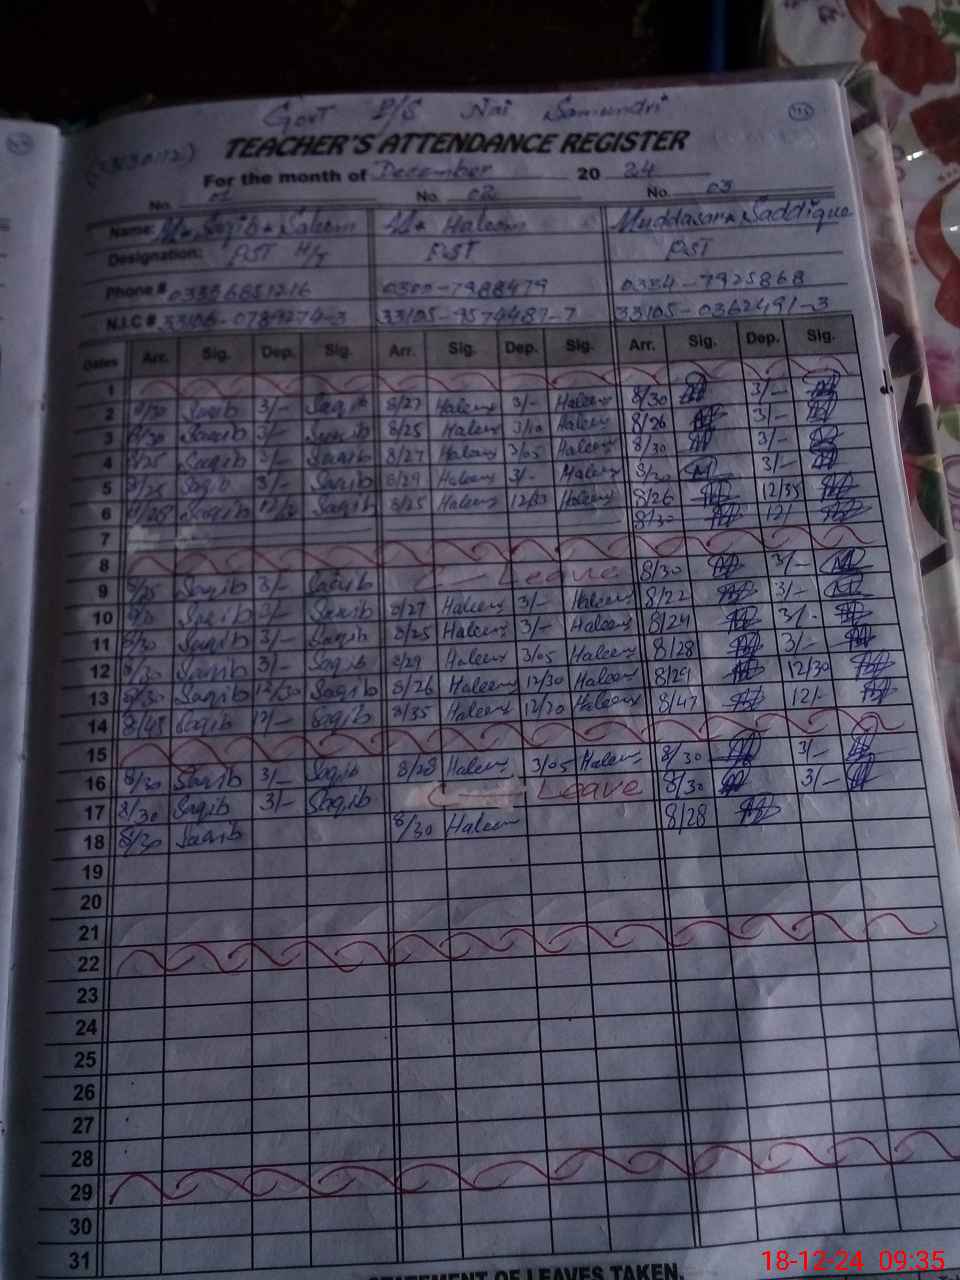 Govt P/S Nai Samundri
TEACHER'S ATTENDANCE REGISTER
For the month of December 2024
No. 01 No. 02 No. 03
Name: M. Saqib Saleem M. Haleem Muddasar Saddique
Designation: PST H/T PST PST
Phone # 03336851216 0300-7988479 0334-7925868
N.I.C # 33105-9574487-7 33105-0362491-3
Dates Arr. Sig. Dep. Sig. Arr. Sig. Dep. Sig. Arr. Sig. Dep. Sig.
1
2 8/30 Saqib 3/- Saqib 8/27 Haleem 3/- Haleem 8/30 3/-
3 8/30 Saqib 3/- Saqib 8/25 Haleem 3/10 Haleem 8/26 3/-
4 8/25 Saqib 3/- Saqib 8/27 Haleem 3/05 Haleem 8/30 3/-
5 8/25 Saqib 3/- Saqib 8/29 Haleem 3/- Haleem 8/30 3/-
6 Saqib Saqib 8/25 Haleem Haleem 8/26 12/35
7 8/30 12/
8
9 8/25 Saqib 3/- Saqib Leave 8/30 3/-
10 Saqib 3/- Saqib 8/27 Haleem 3/- Haleem 8/22 3/-
11 8/30 Saqib 3/- Saqib 8/25 Haleem 3/- Haleem 8/24 3/-
12 8/30 Saqib 3/- Saqib 8/29 Haleem 3/05 Haleem 8/28 3/-
13 8/30 Saqib 12/30 Saqib 8/26 Haleem 12/30 Haleem 8/29 12/30
14 8/45 Saqib 12/- Saqib 8/35 Haleem 12/20 Haleem 8/47 12/-
15
16 8/30 Saqib 3/- Saqib 8/28 Haleem 3/05 Haleem 8/30 3/-
17 8/30 Saqib 3/- Saqib Leave 8/30 3/-
18 8/30 Saqib 8/30 Haleem 8/28
19
20
21
22
23
24
25
26
27
28
29
30
31
STATEMENT OF LEAVES TAKEN.
18-12-24 09:35